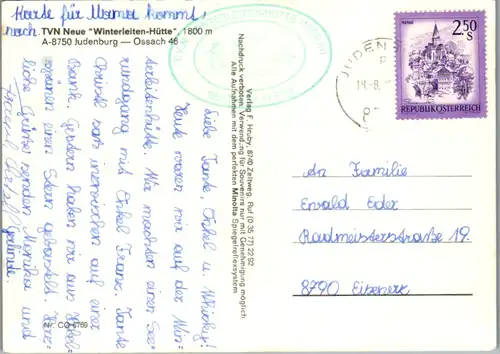 Karte für Mama kommt
nach.
TVN Neue "Winterleiten-Hütte", 1800 m
A-8750 Judenburg — Ossach 46
Liebe Tante, Onkel u. Whisky!
Heute waren wir auf der Win-
terleitenhütte. Wir machten einen See-
rundgang mit Onkel Franz. Tante
Christl sah inzwischen auf einer
Bank. Gestern haben wir aus Holz-
spänen einen Stern gebastelt. Herz-
liche Grüße senden Monika und
Gerlinde.
Nr. CO 6769
Verlag F. Hruby, 8740 Zeltweg, Ruf (0 35 77) 22 92
Nachdruck verboten. Verwendung für Souvenirs nur mit Genehmigung möglich
Alle Aufnahmen mit dem perfekten Minolta Spiegelreflexsystem
JUDENB
2,50 S
REPUBLIK ÖSTERREICH
An Familie
Ewald Eder
Raudmeisterstraße 19
8790 Eisenerz